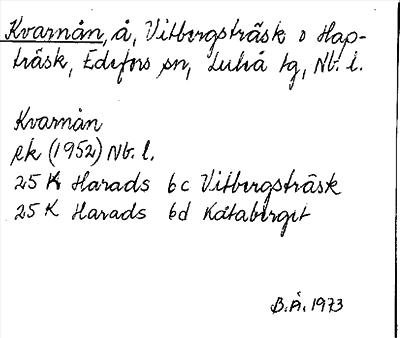 Kvarnån, å, Vitbergsträsk o Hap-
träsk, Edefors sn, Luleå tg, Nb. l.
Kvarnån
ek (1952) Nb. l.
25 K Harads 6c Vitbergsträsk
25 K Harads 6d Kåtaberget
B.Å. 1973